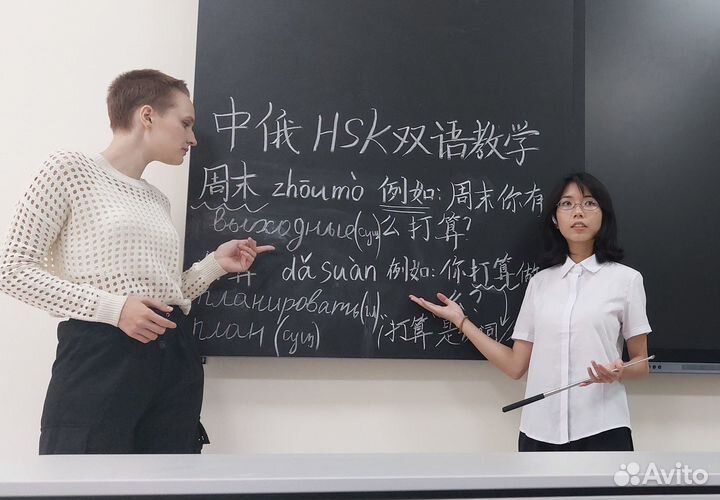 中俄 HSK双语教学
周末 zhōumò 例如: 周末你有
выходные(сущ) 么打算?
算 dǎsuàn 例如: 你打算做
планировать(гл) 么?
план (сущ) "打算是 词
Avito